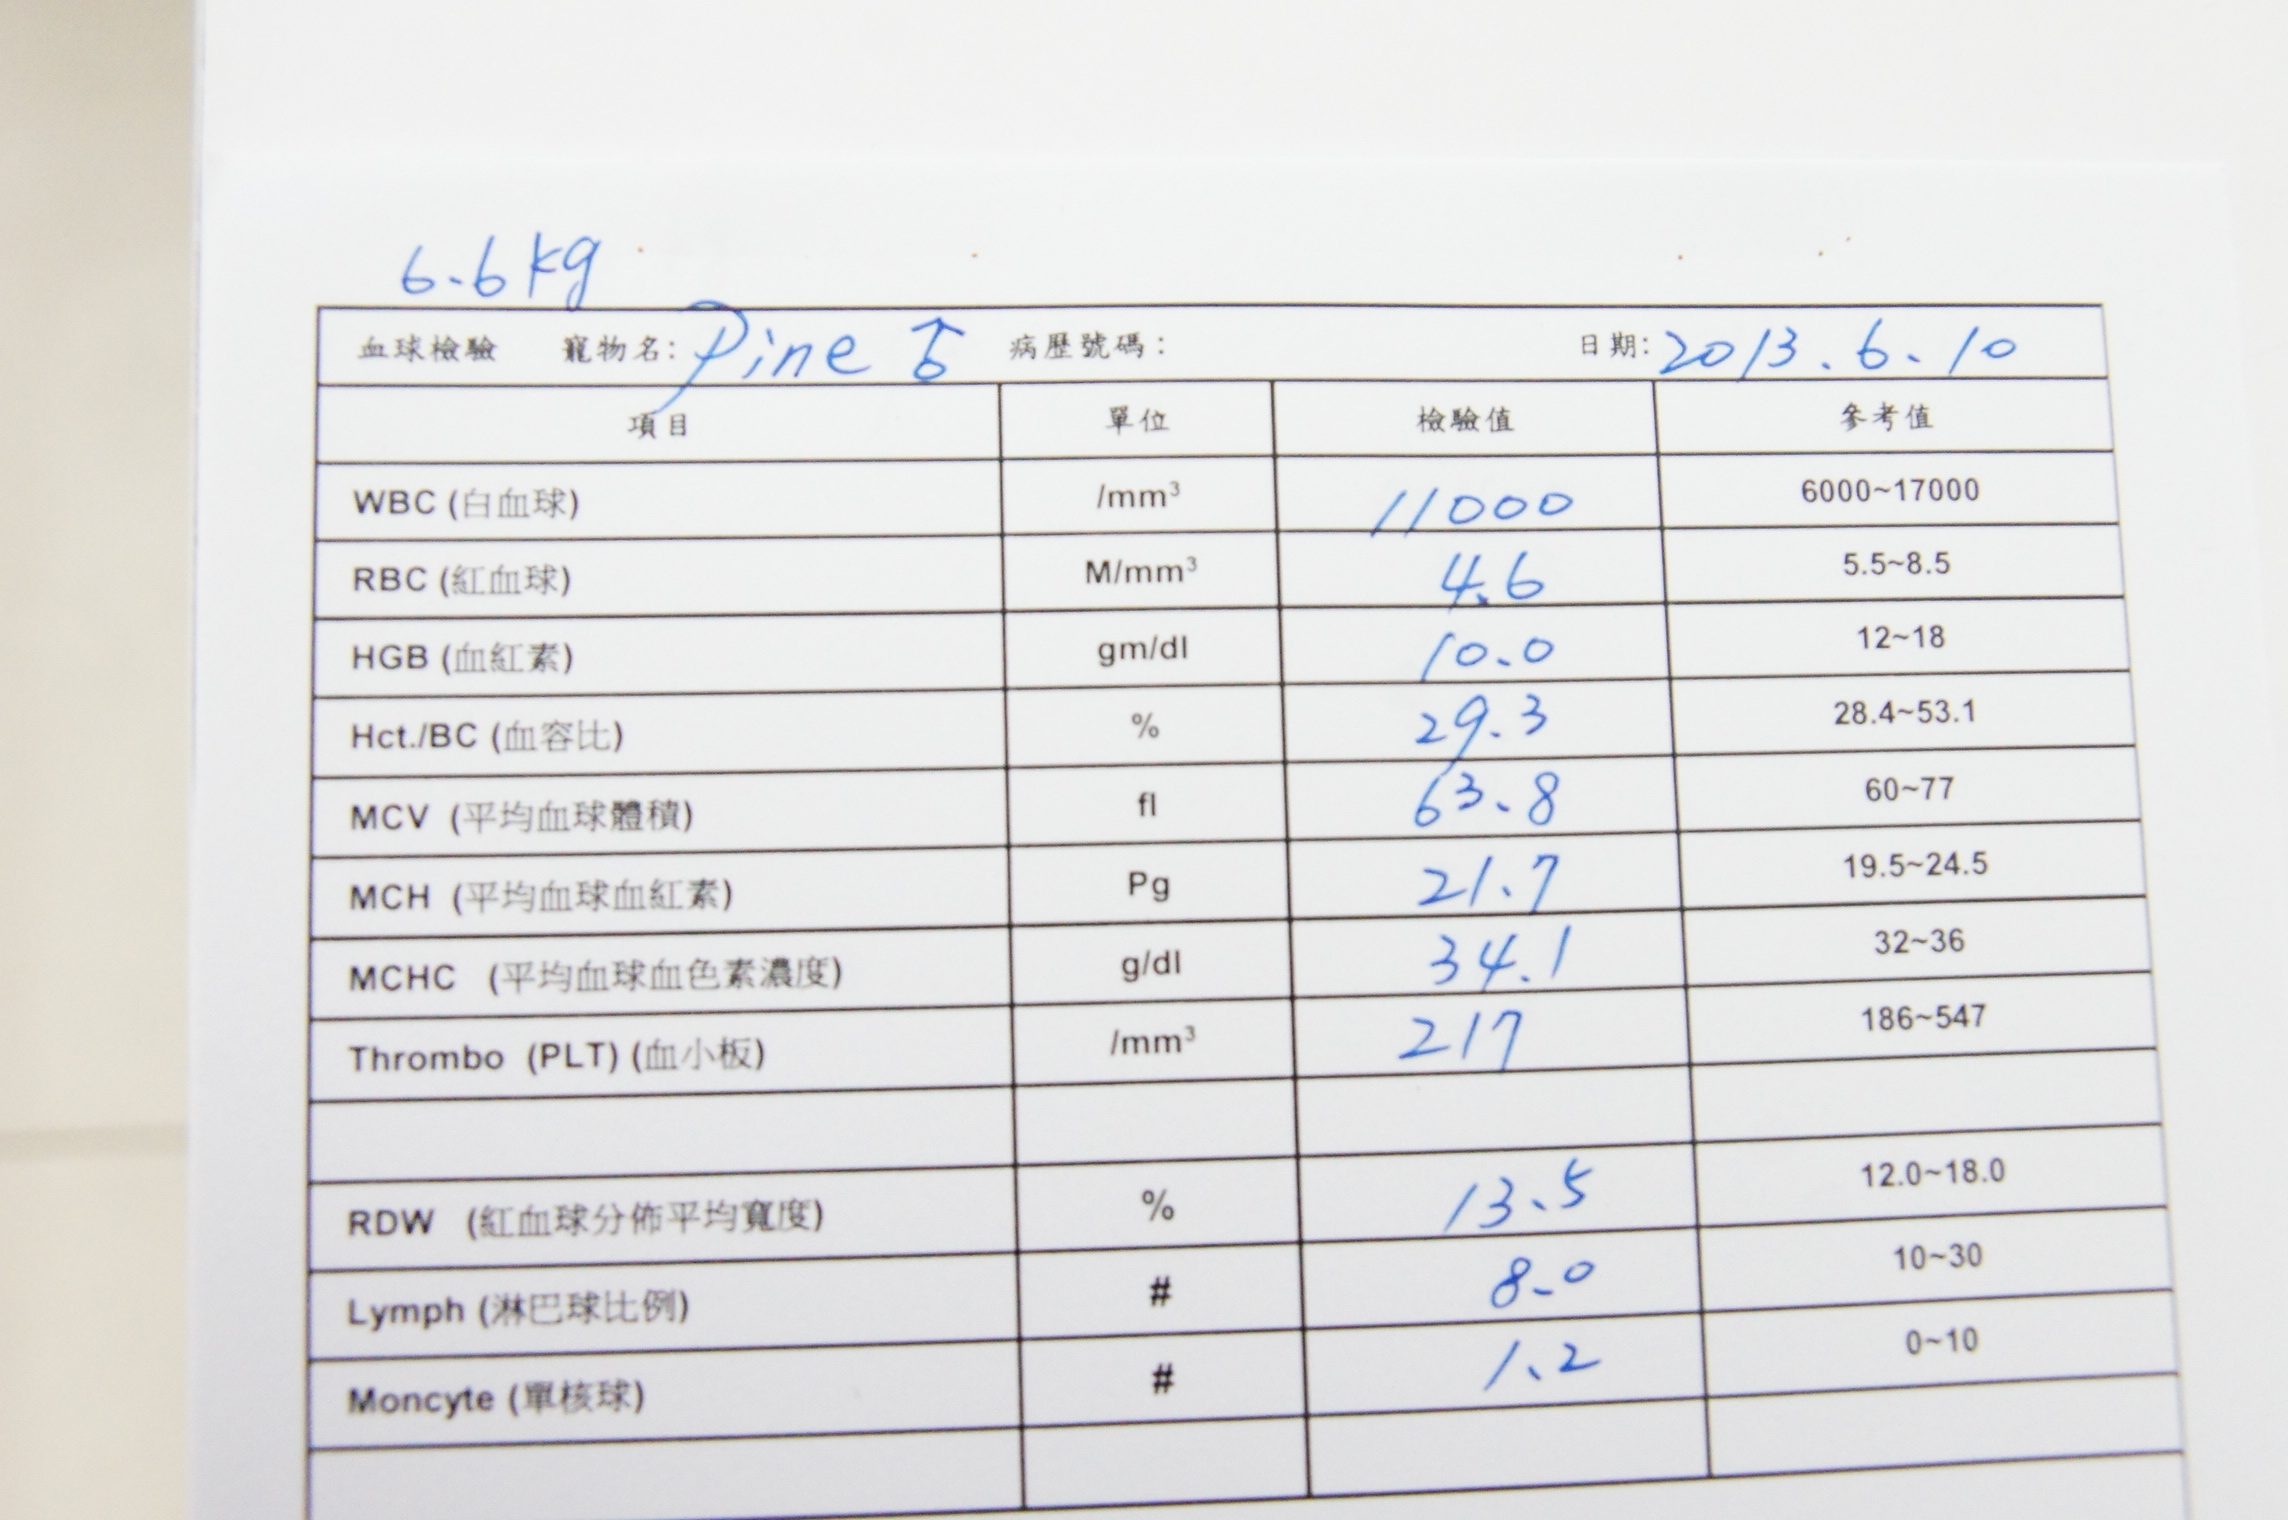 6.6kg
血球檢驗 寵物名: Pine ♂ 病歷號碼: 日期: 2013.6.10
項目 單位 檢驗值 參考值
WBC (白血球) /mm³ 11000 6000~17000
RBC (紅血球) M/mm³ 4.6 5.5~8.5
HGB (血紅素) gm/dl 10.0 12~18
Hct./BC (血容比) % 29.3 28.4~53.1
MCV (平均血球體積) fl 63.8 60~77
MCH (平均血球血紅素) Pg 21.7 19.5~24.5
MCHC (平均血球血色素濃度) g/dl 34.1 32~36
Thrombo (PLT) (血小板) /mm³ 217 186~547
RDW (紅血球分佈平均寬度) % 13.5 12.0~18.0
Lymph (淋巴球比例) # 8.0 10~30
Moncyte (單核球) # 1.2 0~10